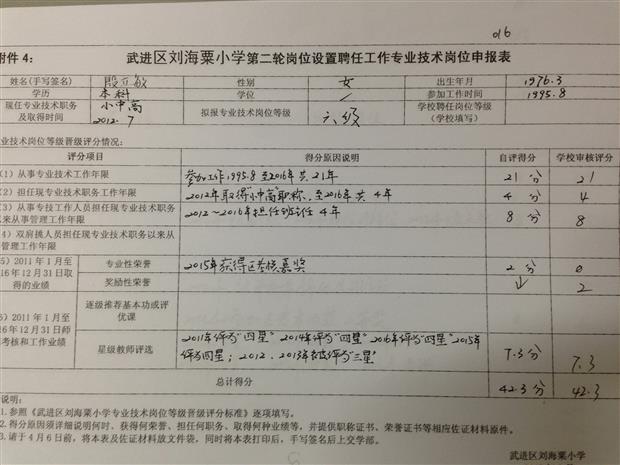 016
附件 4：
武进区刘海粟小学第二轮岗位设置聘任工作专业技术岗位申报表
姓名(手写签名) 殷立敏 性别 女 出生年月 1976.3
学历 本科 学位 / 参加工作时间 1995.8
现任专业技术职务及取得时间 小中高 2012.7 拟报专业技术岗位等级 六级 学校聘任岗位等级(学校填写)
业技术岗位等级晋级评分情况：
评分项目 得分原因说明 自评得分 学校审核评分
(1) 从事专业技术工作年限 参加工作1995.8至2016年共21年 21分 21
(2) 担任现专业技术职务工作年限 2012年取得"小中高"职称，至2016年共4年 4分 4
(3) 从事专技工作人员担任现专业技术职务以来从事管理工作年限 2012～2016年担任班主任4年 8分 8
4) 双肩挑人员担任现专业技术职务以来从事管理工作年限
5) 2011年1月至16年12月31日取得的业绩 专业性荣誉 2015年获得区 嘉奖 2分 0
奖励性荣誉 ↓ 2
逐级推荐基本功或评优课
6) 2011年1月至16年12月31日师考核和工作业绩 星级教师评选 2011年评为"四星" 2014年评为"四星" 2016年评为"四星" 2015年
评为四星；2012、2013年被评为"三星" 7.3分 7.3
总计得分 42.3分 42.3
说明：
1.参照《武进区刘海粟小学专业技术岗位等级晋级评分标准》逐项填写。
2.得分原因须详细说明何时、获得何荣誉、担任何职务、取得何种业绩等，并提供职称证书、荣誉证书等相应佐证材料原件。
3.请于4月6日前，将本表及佐证材料放文件袋，同时将本表打印后，手写签名后上交学部。
武进区刘海粟小学